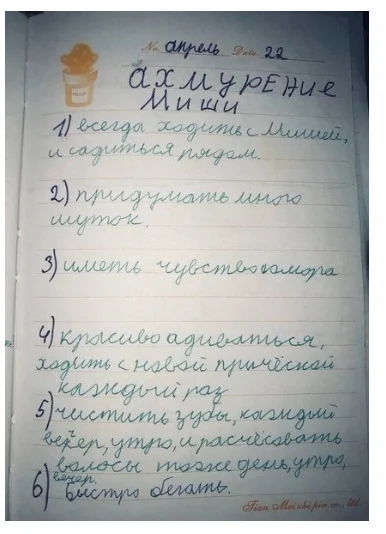 No апрель Date 22
ахмурение
миши
1) всегда ходить с Мишей,
и садиться рядом.
2) придумать много
шуток.
3) иметь чувство юмора
4) красиво адиваться,
ходить с новой причёской
каждый раз
5) чистить зубы, каждый
вечер, утро, и расчёсовать
волосы тоже день, утро,
вечер.
6) быстро бегать.
Tian Mei shi pin co., Ltd.